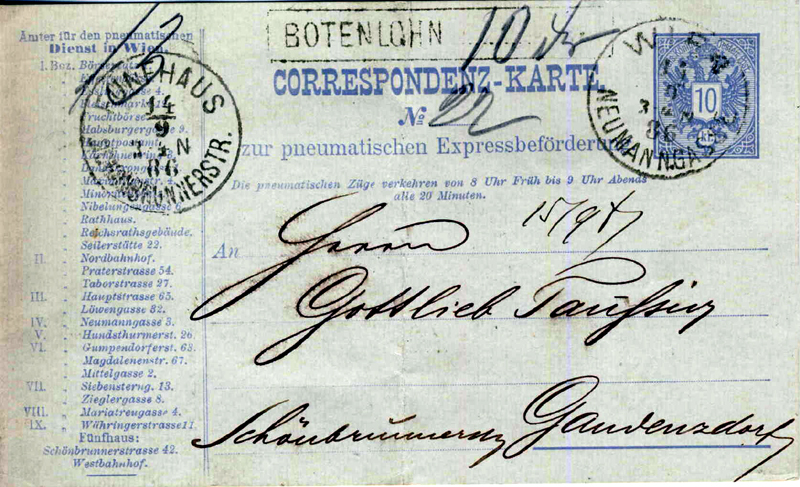 Ämter für den pneumatischen
Dienst in Wien.
I. Bez. Börse
Esslinggasse 4.
Fleischmarkt 19.
Fruchtbörse.
Habsburgergasse 9.
Hauptpostamt.
Minoriten
Nibelungengasse 6.
Rathhaus.
Reichsrathsgebäude.
Seilerstätte 22.
II. Nordbahnhof.
" Praterstrasse 54.
" Taborstrasse 27.
III. Hauptstrasse 65.
" Löwengasse 32.
IV. Neumanngasse 3.
V. Hundsthurmerst. 26.
VI. Gumpendorferst. 63.
" Magdalenenstr. 67.
" Mittelgasse 2.
VII. Siebensterng. 13.
" Zieglergasse 8.
VIII. Mariatreugasse 4.
IX. Währingerstrasse 11.
Fünfhaus:
Schönbrunnerstrasse 42.
Westbahnhof.
BOTENLOHN
10 kr
CORRESPONDENZ-KARTE
No 22
zur pneumatischen Expressbeförderung
Die pneumatischen Züge verkehren von 8 Uhr Früh bis 9 Uhr Abends
alle 20 Minuten.
WIEN
NEUMANNGASSE
86
10
FÜNFHAUS
14
9
86
SCHÖNBRUNNERSTR.
15/9
An Herrn
Gottlieb Taussig
Schönbrunnerstr Gaudenzdorf